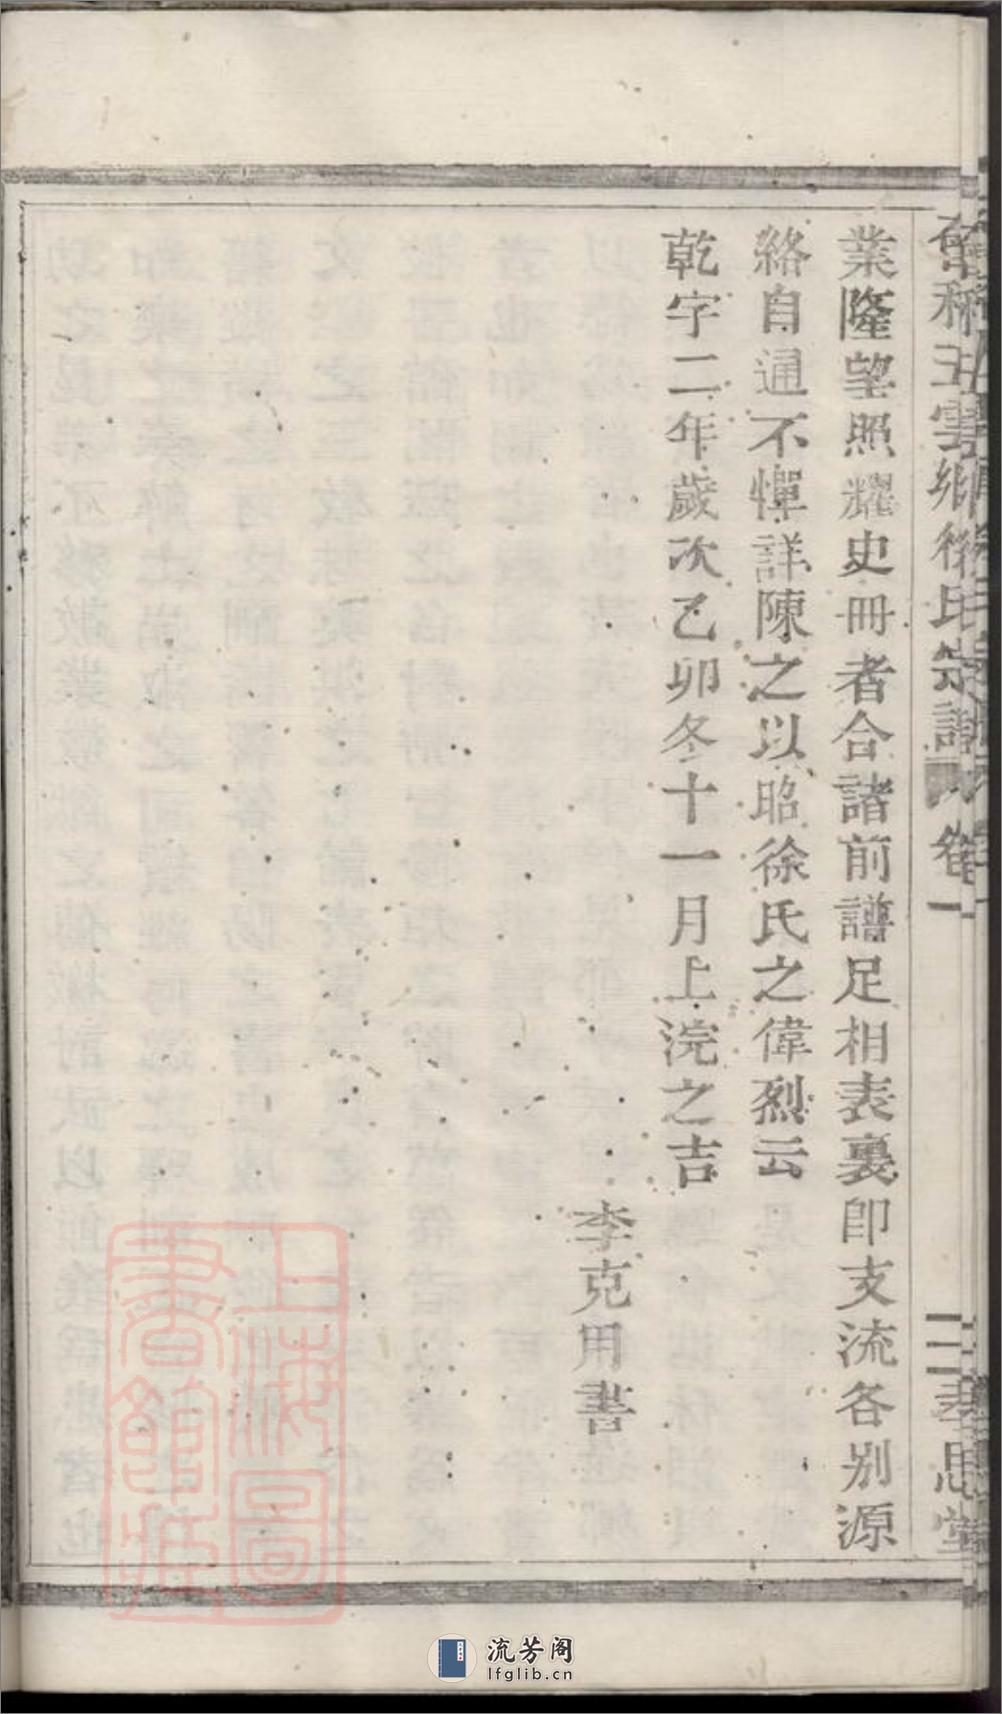 業隆望照耀史冊者合諸前譜足相表裏卽支流各別源
絡自通不憚詳陳之以昭徐氏之偉烈云
乾字二年歲次乙卯冬十一月上浣之吉
李克用書
鄉徐氏宗譜 卷一
思堂
上海圖書館藏
流芳阁
lfglib.cn